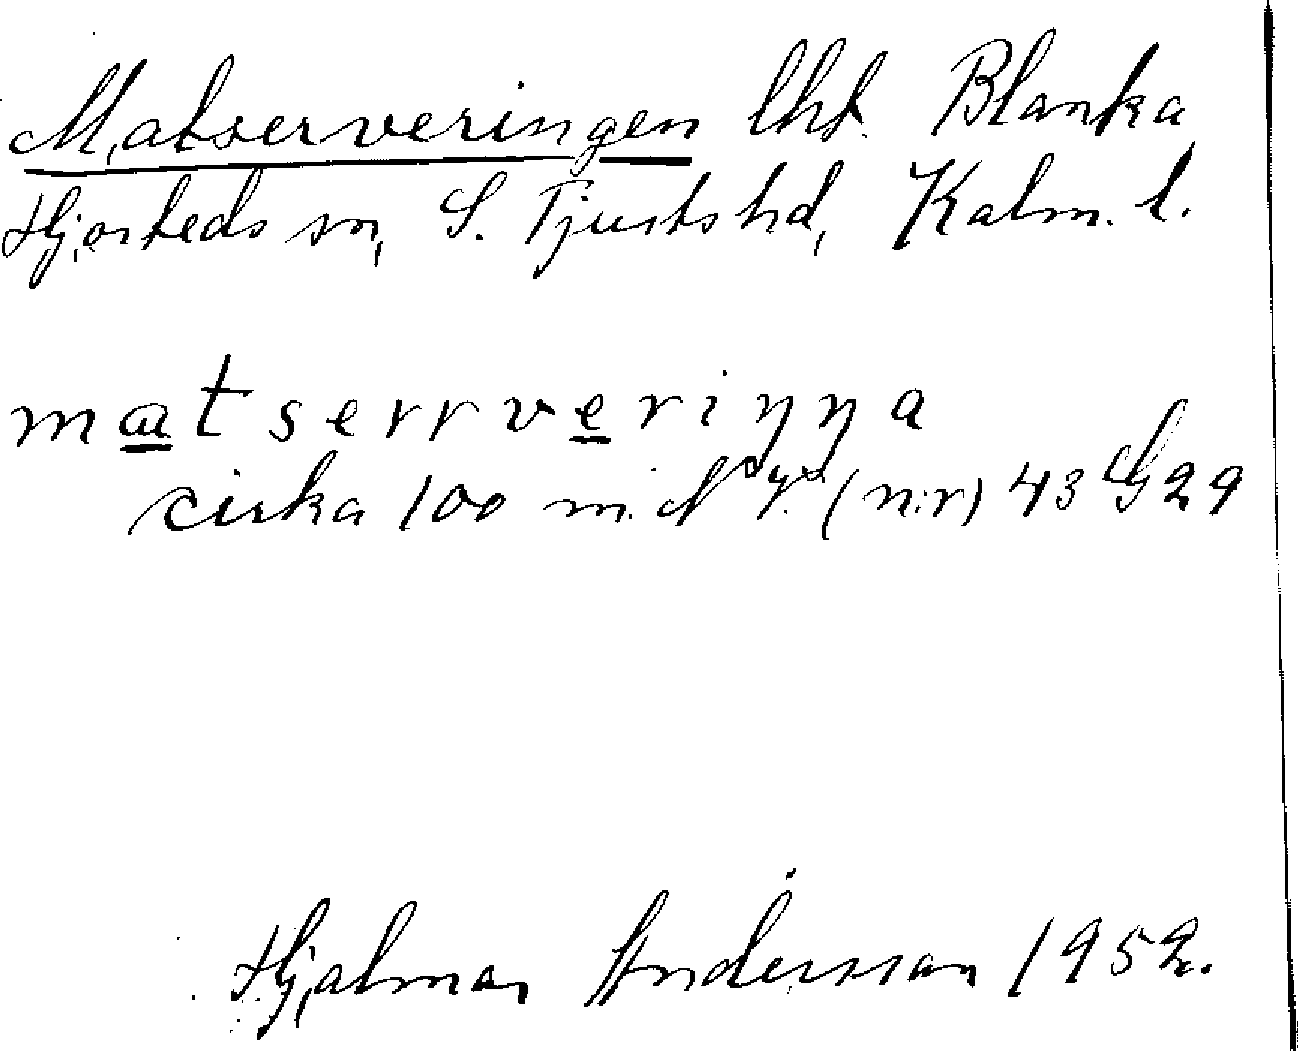 Matserveringen lht. Blanka
Hjorteds sn, S. Tjusts hd, Kalm. l.
matserrveriŋŋa
cirka 100 m. N Y. (n:r) 43 G 29
Hjalmar Andersson 1952.